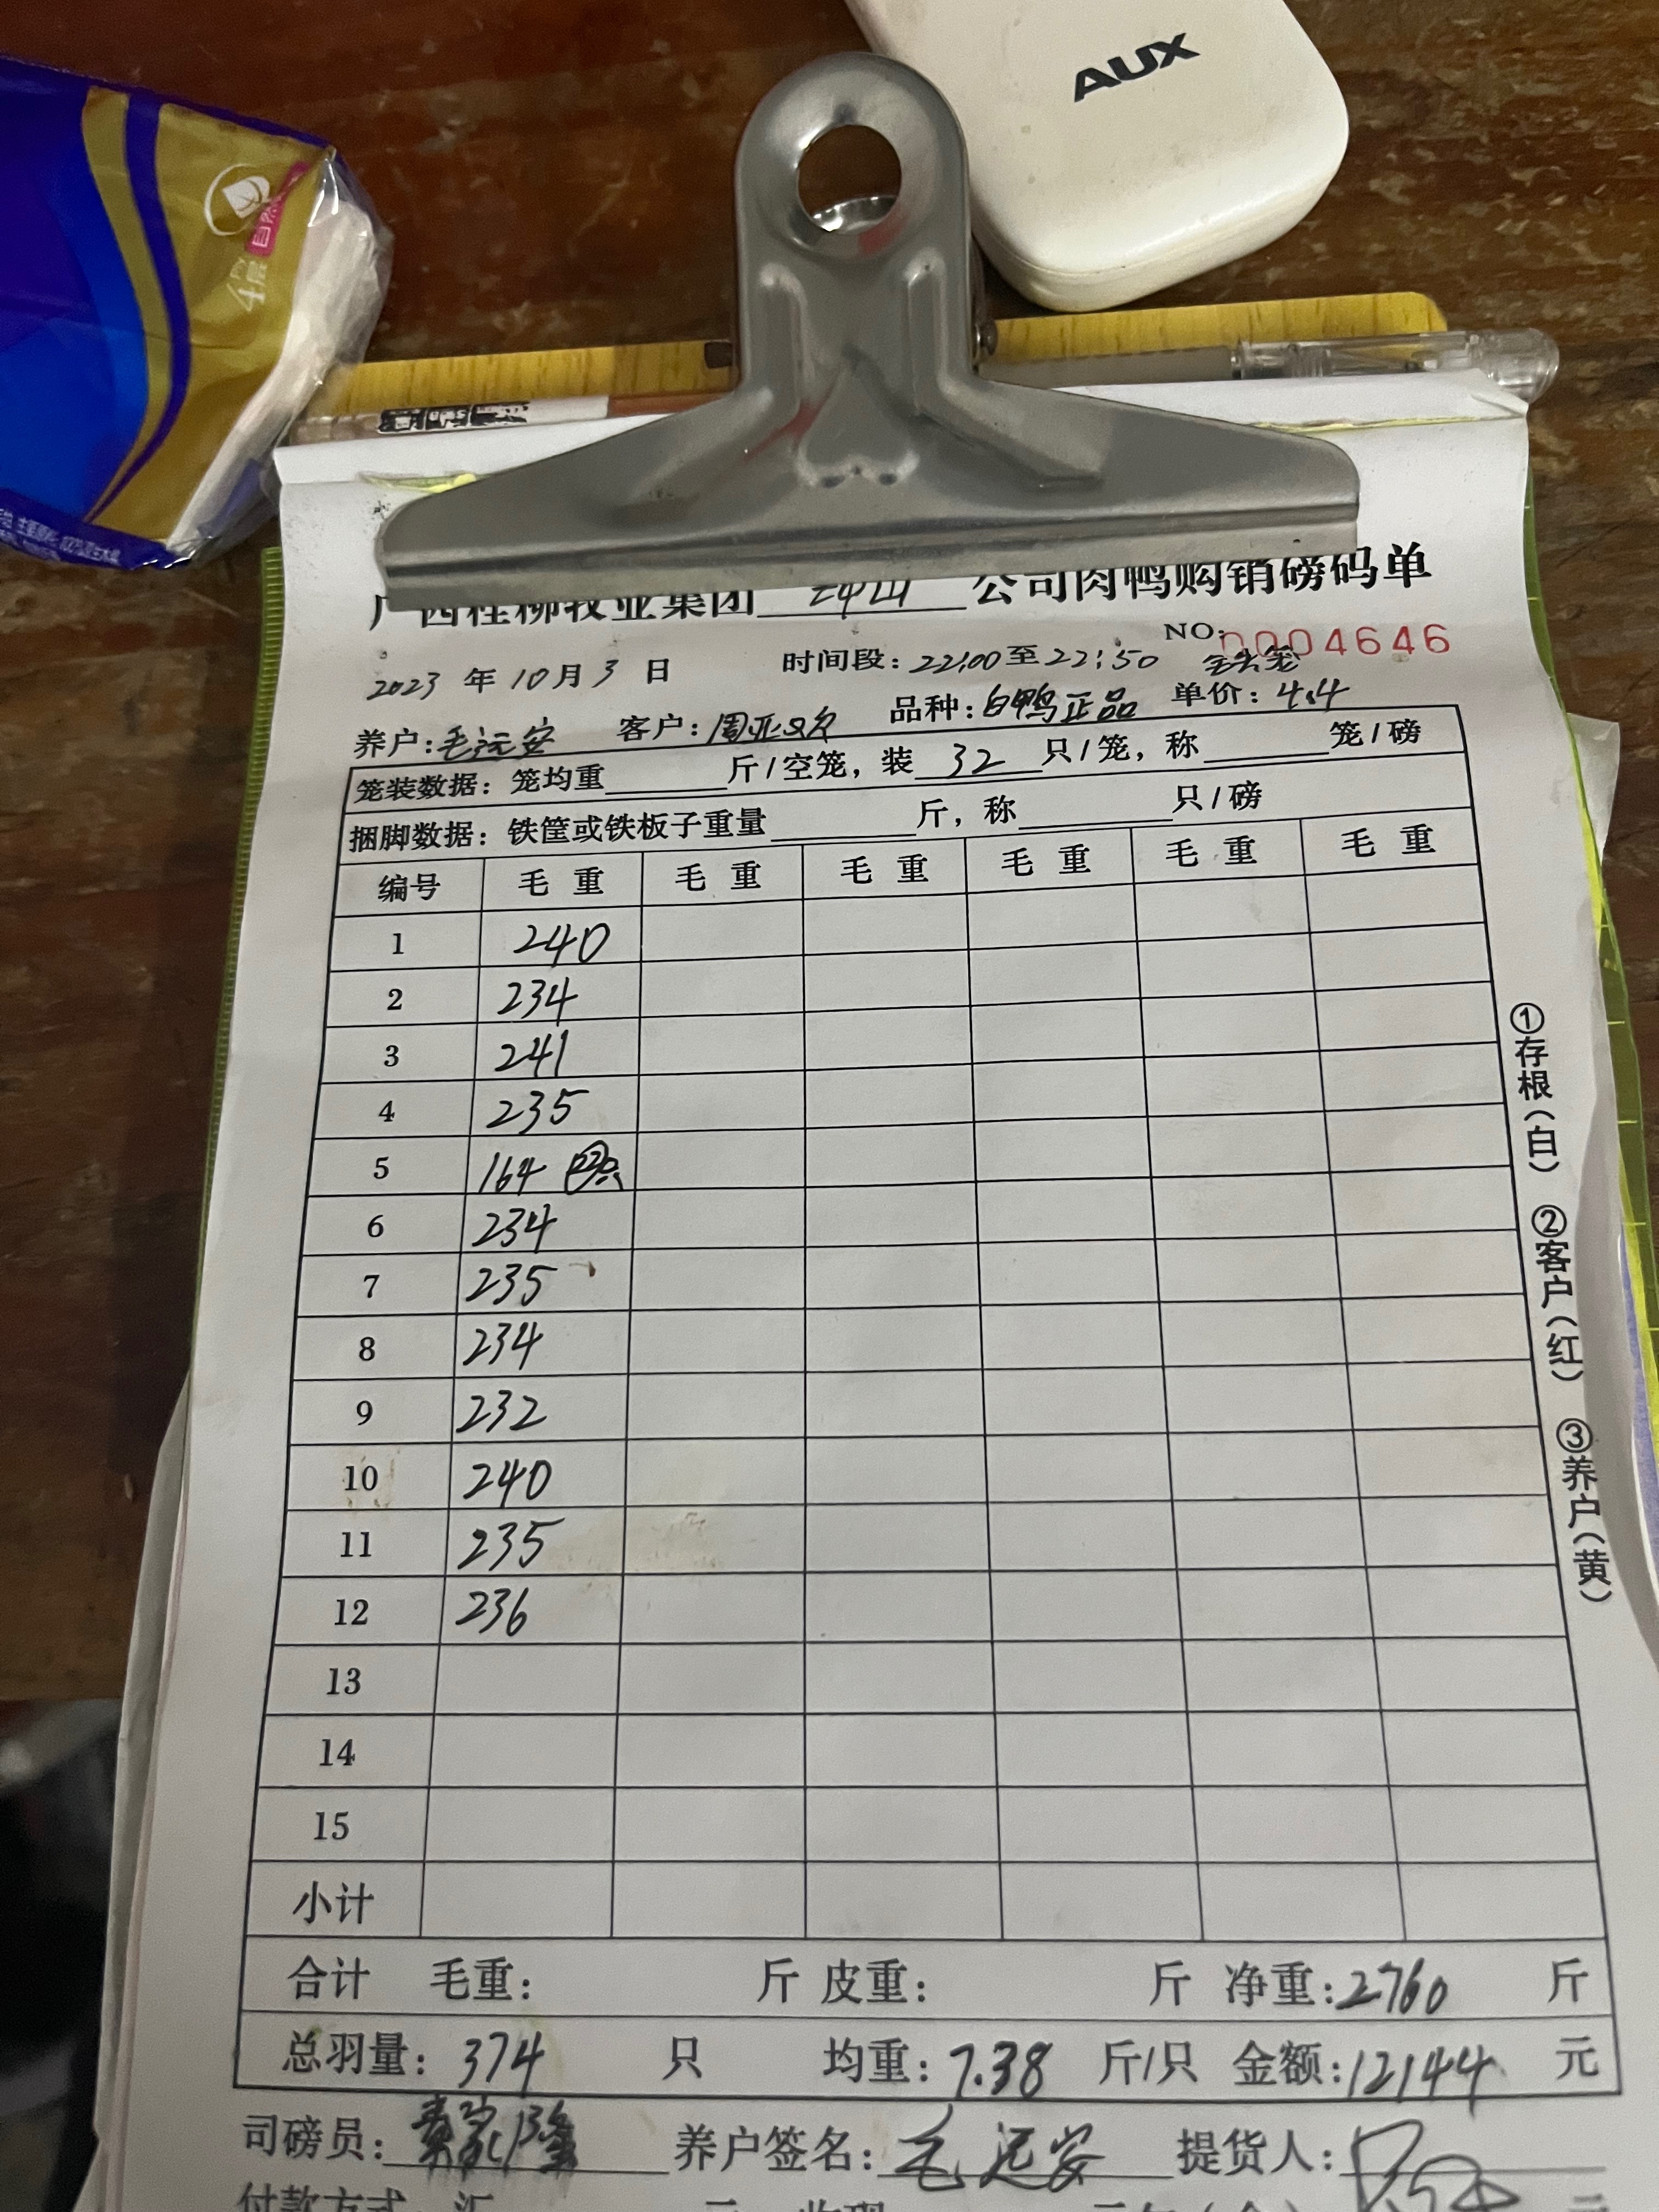 AUX
自然
4层
广西桂柳牧业集团 公司肉鸭购销磅码单
NO: 0004646
2023 年 10 月 3 日 时间段: 22:00 至 22:50
养户: 毛远安 客户: 品种: 白鸭正品 单价: 4.4
笼装数据: 笼均重 斤/空笼, 装 32 只/笼, 称 笼/磅
捆脚数据: 铁筐或铁板子重量 斤, 称 只/磅
编号 毛重 毛重 毛重 毛重 毛重 毛重
1 240
2 234
3 241
4 235
5 164
6 234
7 235
8 234
9 232
10 240
11 235
12 236
13
14
15
小计
合计 毛重: 斤 皮重: 斤 净重: 2760 斤
总羽量: 374 只 均重: 7.38 斤/只 金额: 12144 元
司磅员: 养户签名: 毛远安 提货人:
付款方式: 汇
①存根(白) ②客户(红) ③养户(黄)